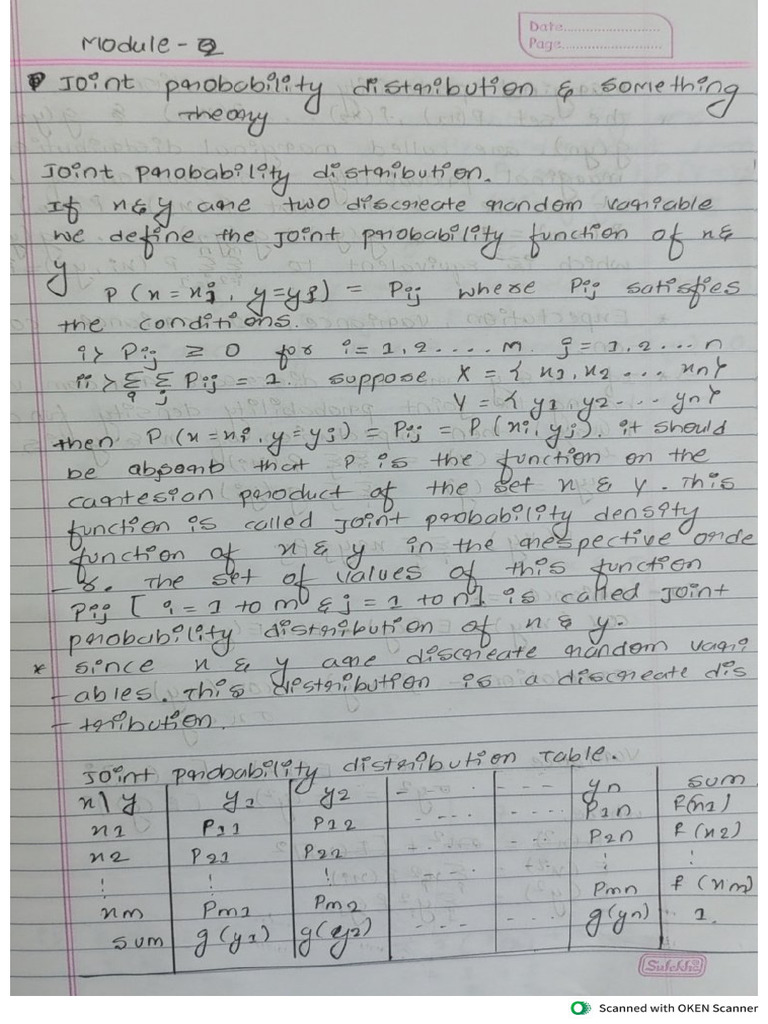 Date.....................
Page.....................
Module - 2
Joint probability distribution & something
Theory
Joint probability distribution.
If x & y are two discreate random variable
we define the joint probability function of x &
y
P (x = xi, y = yj) = Pij where Pij satisfies
the conditions.
i> Pij ≥ 0 for i = 1, 2 .... m. j = 1, 2 ... n
ii> Σi Σj Pij = 1. suppose X = { x1, x2 ... xn}
Y = { y1, y2 - .. yn}
then P (x = xi, y = yj) = Pij = P (xi, yj). it should
be absorb that P is the function on the
cartesion product of the set x & y. This
function is called joint probability density
function of x & y in the respective orde
- r. The set of values of this function
Pij [ i = 1 to m & j = 1 to n] is called joint
probability distribution of x & y.
* since x & y are discreate random vari
- ables. This distribution is a discreate dis
- tribution.
Joint probability distribution Table.
x \ y y1 y2 - - - . - - - yn sum
x1 P11 P12 - . . . . - - - - P1n f(x1)
x2 P21 P22 - . - . . - - - P2n f(x2)
⋮ ⋮ ⋮ ⋮ ⋮
xm Pm1 Pm2 Pmn f(xm)
sum g(y1) g(y2) - - - - - - - g(yn) 1.
Sulekha
Scanned with OKEN Scanner